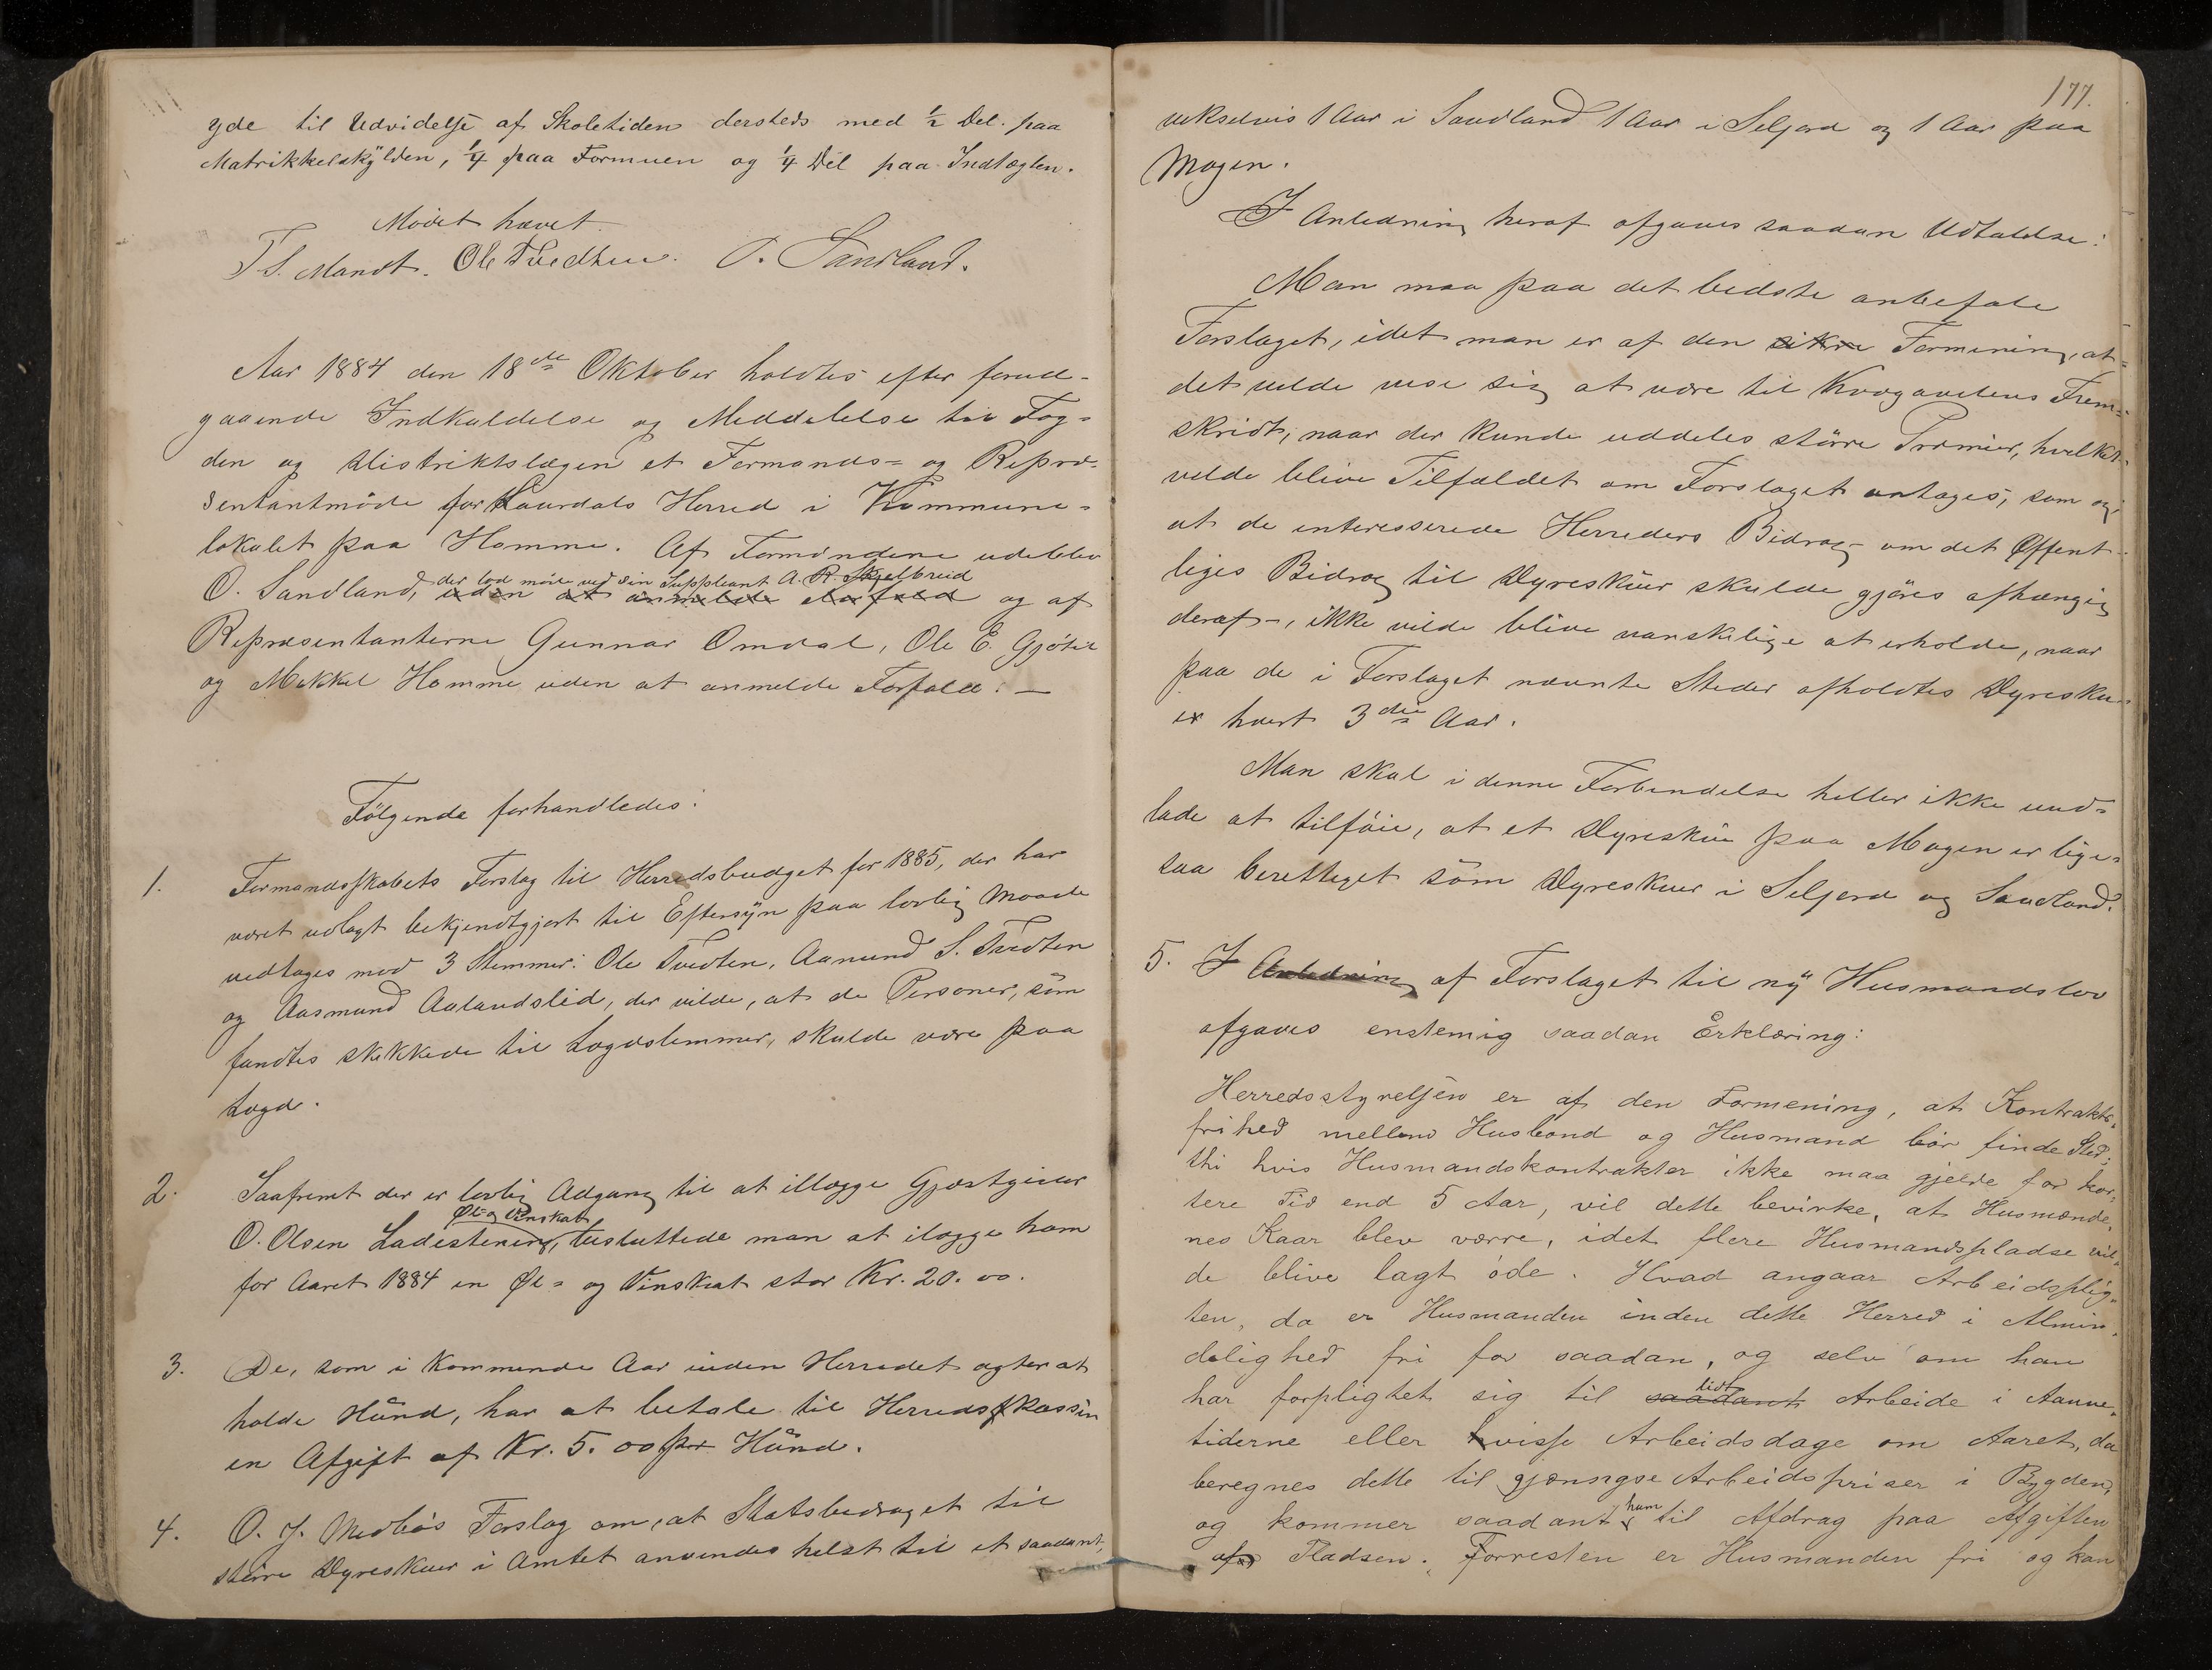 yde til Udvidelse af Skoletiden dersteds med 1/2 Del. paa
Matrikkelskylden, 1/4 paa Formuen og 1/4 Del paa Indtægten.
Mödet hævet.
T. S. Mandt. Ole Tvedten. O. Sandland.
Aar 1884 den 18de Oktober holdtes efter forud-
gaaende Indkaldelse og Meddelelse til Fog-
den og Distriktslægen et Formands- og Repræ-
sentantmöde for Laurdals Herred i Kommune-
lokalet paa Homme. Af Formændene udeblev
der lod möde ved sin Suppleant A. R. Skjelbreid
O. Sandland, uden at anmelde forfald og af
Repræsentanterne Gunnar Omdal, Ole E. Gjötil
og Mikkel Homme uden at anmelde Forfald. —
Fölgende forhandledes:
1. Formandsskabets Forslag til Herredsbudget for 1885, der har
været udlagt bekjendtgjort til Eftersÿn paa lovlig Maade
vedtages mod 3 Stemmer: Ole Tvedten, Aanund S. Tvedten
og Aasmund Aalandslid, der vilde, at de Personer, som
fandtes skikkede til Lægdslemmer, skulde være paa
Lægd.
2. Saafremt der er lovlig Adgang til at illægge Gjæstgiver
Øl- og Vinskat
O. Olsen Ladestening, besluttede man at ilægge ham
for Aaret 1884 en Øl- og Vinskat stor Kr. 20.00.
3. De, som i kommende Aar inden Herredet agter at
holde Hŭnd, har at betale til Herredskassen
en Afgift af Kr. 5.00 pr Hŭnd.
4. O. J. Medbös Forslag om, at Statsbidraget til
större Dyreskuer i Amtet anvendes helst til et saadant,
177.
vekselvis 1 Aar i Saudland 1 Aar i Seljord og 1 Aar paa
Mogen.
I Anledning heraf afgaves saadan Udtalelse:
Man maa paa det bedste anbefale
Forslaget, idet man er af den sikre Formening, at
det vilde vise sig at være til Kvægavlens Frem-
skridt, naar der kunde uddeles större Præmier, hvilket
vilde blive Tilfældet om Forslaget antages, som og
at de interesserede Herreders Bidrag – om det Offent-
liges Bidrag til Dyreskuer skulde gjöres afhængig
deraf –, ikke vilde blive vanskelige at erholde, naar
paa de i Forslaget nævnte Steder afholdtes Dyresku-
er hvert 3die Aar.
Man skal i denne Forbindelse heller ikke und-
lade at tilföie, at et Dyreskue paa Mogen er lige-
saa berettiget som Dyreskuer i Seljord og Saudland.
5. I Anledning af Forslaget til nÿ Husmandslov
afgaves enstemig saadan Erklæring:
Herredsstyrelsen er af den Formening, at Kontrakts-
frihed mellem Husbond og Husmand bör finde Sted;
thi hvis Husmandskontrakter ikke maa gjelde for kor-
tere Tid end 5 Aar, vil dette bevirke, at Husmænde-
nes Kaar blev værre, idet flere Husmandspladse vil-
de blive lagt öde. Hvad angaar Arbeidsplig-
ten, da er Husmanden inden dette Herred i Almin-
delighed fri for saadan, og selv om han
lidt
har forpligtet sig til saadant Arbeide i Aanne-
tiderne eller visse Arbeidsdage om Aaret, da
beregnes dette til gjængse Arbeidspriser i Bygden,
ham
og kommer saadant til Afdrag paa Afgiften
af Pladsen. Forresten er Husmanden fri og kan